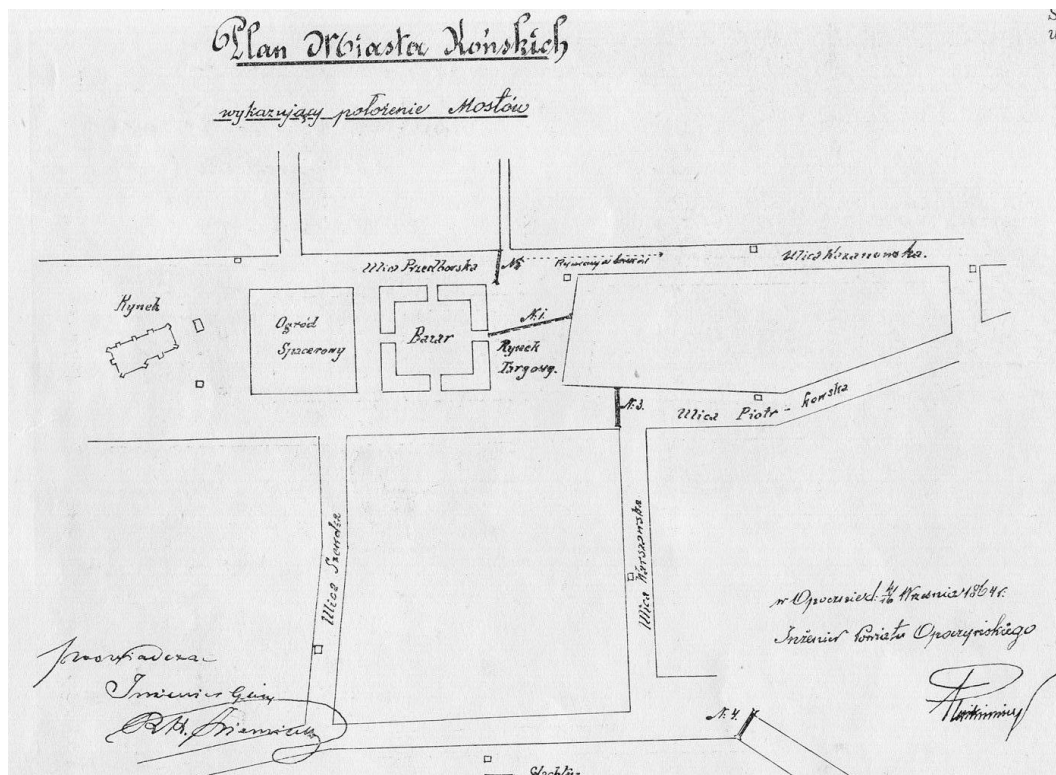 Plan Miasta Końskich
wykazujący położenie Mostów
Ulica Przedborska
N2
Ulica Kazanowska.
Rynek
Ogród
Spacerowy
Bazar
N.1.
Rynek
Targowy.
N.3.
Ulica Piotr-kowska
Ulica Szeroka
Ulica Warszawska
w Opocznie d. 4/16 Września 1864 r.
Inżenier Powiatu Opoczyńskiego
Inżenier
N.4.